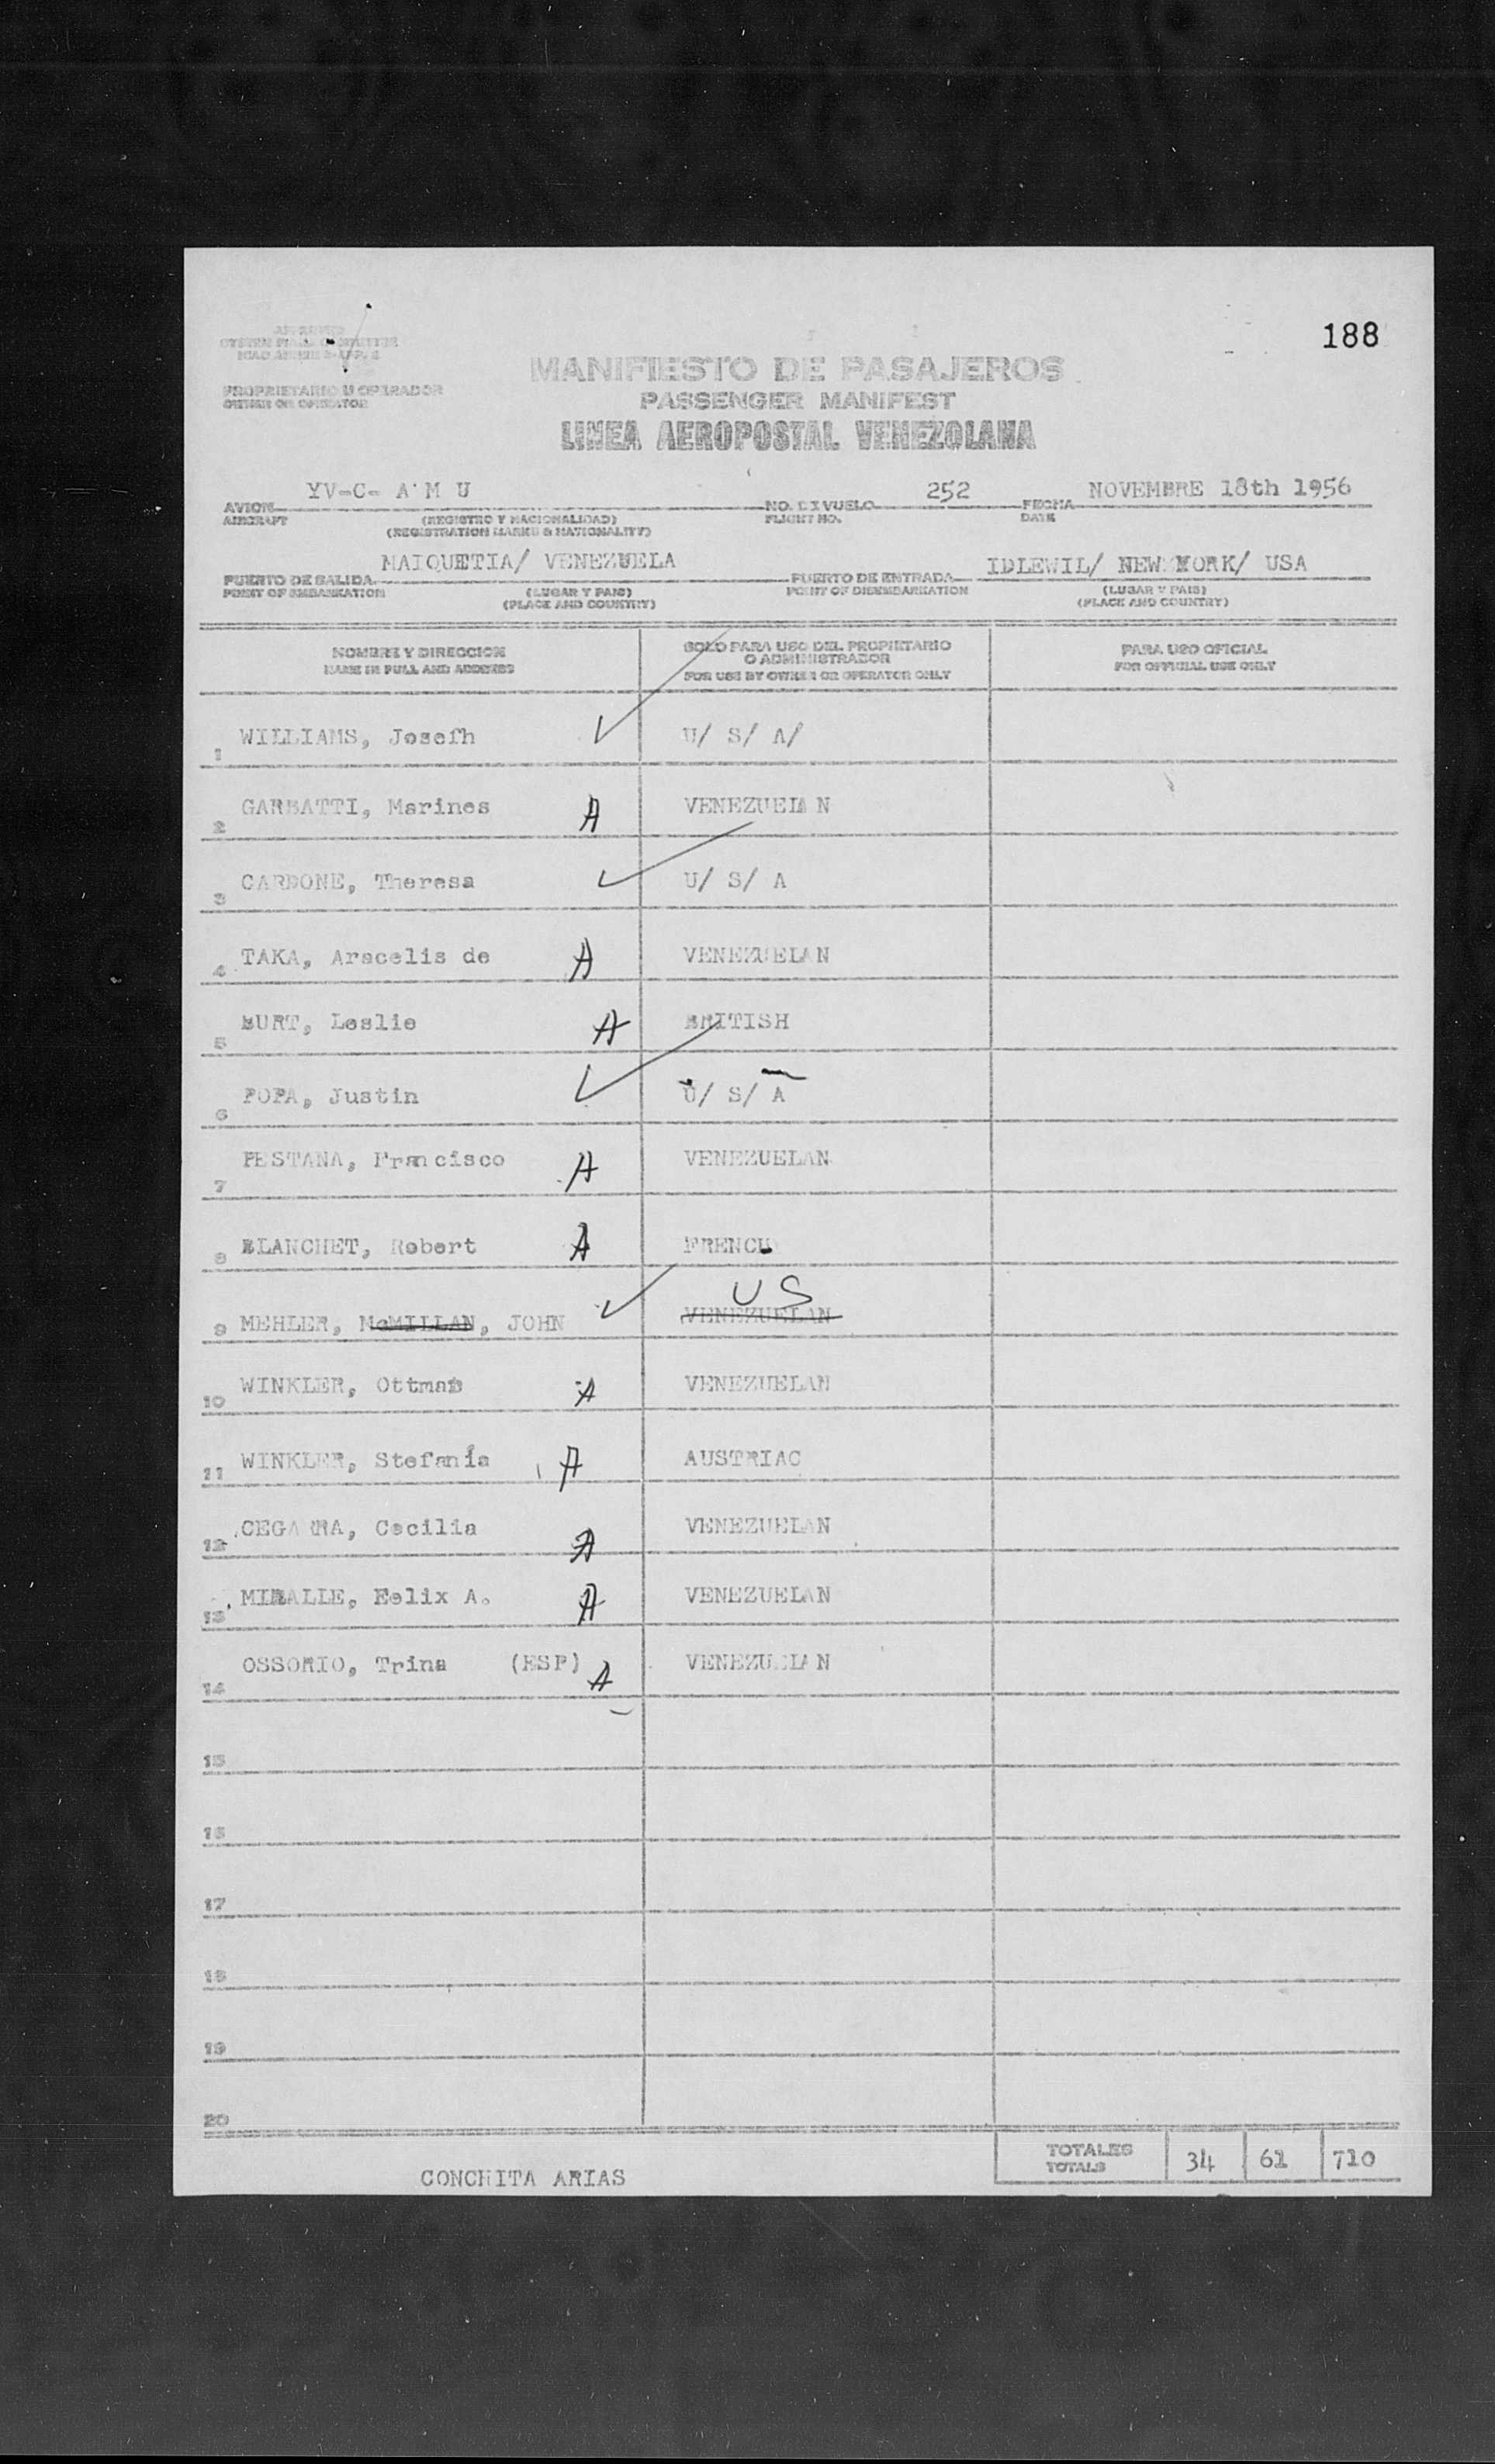 188
MANIFIESTO DE PASAJEROS
PASSENGER MANIFEST
LINEA AEROPOSTAL VENEZOLANA
PROPRIETARIO U OPERADOR
OWNER OR OPERATOR
YV-C- A M U 252 NOVEMBRE 18th 1956
AVION NO. DE VUELO FECHA
AIRCRAFT (REGISTRO Y NACIONALIDAD) FLIGHT NO. DATE
(REGISTRATION MARKS & NATIONALITY)
MAIQUETIA/ VENEZUELA IDLEWIL/ NEW YORK/ USA
PUERTO DE SALIDA PUERTO DE ENTRADA
POINT OF EMBARKATION (LUGAR Y PAIS) POINT OF DISEMBARKATION (LUGAR Y PAIS)
(PLACE AND COUNTRY) (PLACE AND COUNTRY)
NOMBRE Y DIRECCION SOLO PARA USO DEL PROPIETARIO PARA USO OFICIAL
NAME IN FULL AND ADDRESS O ADMINISTRADOR FOR OFFICIAL USE ONLY
FOR USE BY OWNER OR OPERATOR ONLY
1 WILLIAMS, Josefh U/ S/ A/
2 GARBATTI, Marines A VENEZUELAN
3 CARDONE, Theresa U/ S/ A
4 TAKA, Aracelis de A VENEZUELAN
5 BURT, Leslie A BRITISH
6 POPA, Justin U/ S/ A
7 PESTANA, Francisco A VENEZUELAN
8 BLANCHET, Robert A FRENCH
US
9 MEHLER, McMILLAN, JOHN VENEZUELAN
10 WINKLER, Ottmar A VENEZUELAN
11 WINKLER, Stefanía A AUSTRIAC
12 CEGARRA, Cecilia A VENEZUELAN
13 MIRALLE, Felix A. A VENEZUELAN
14 OSSORIO, Trina (ESP) A VENEZUELAN
15
16
17
18
19
20
TOTALES 34 61 710
TOTALS
CONCHITA ARIAS